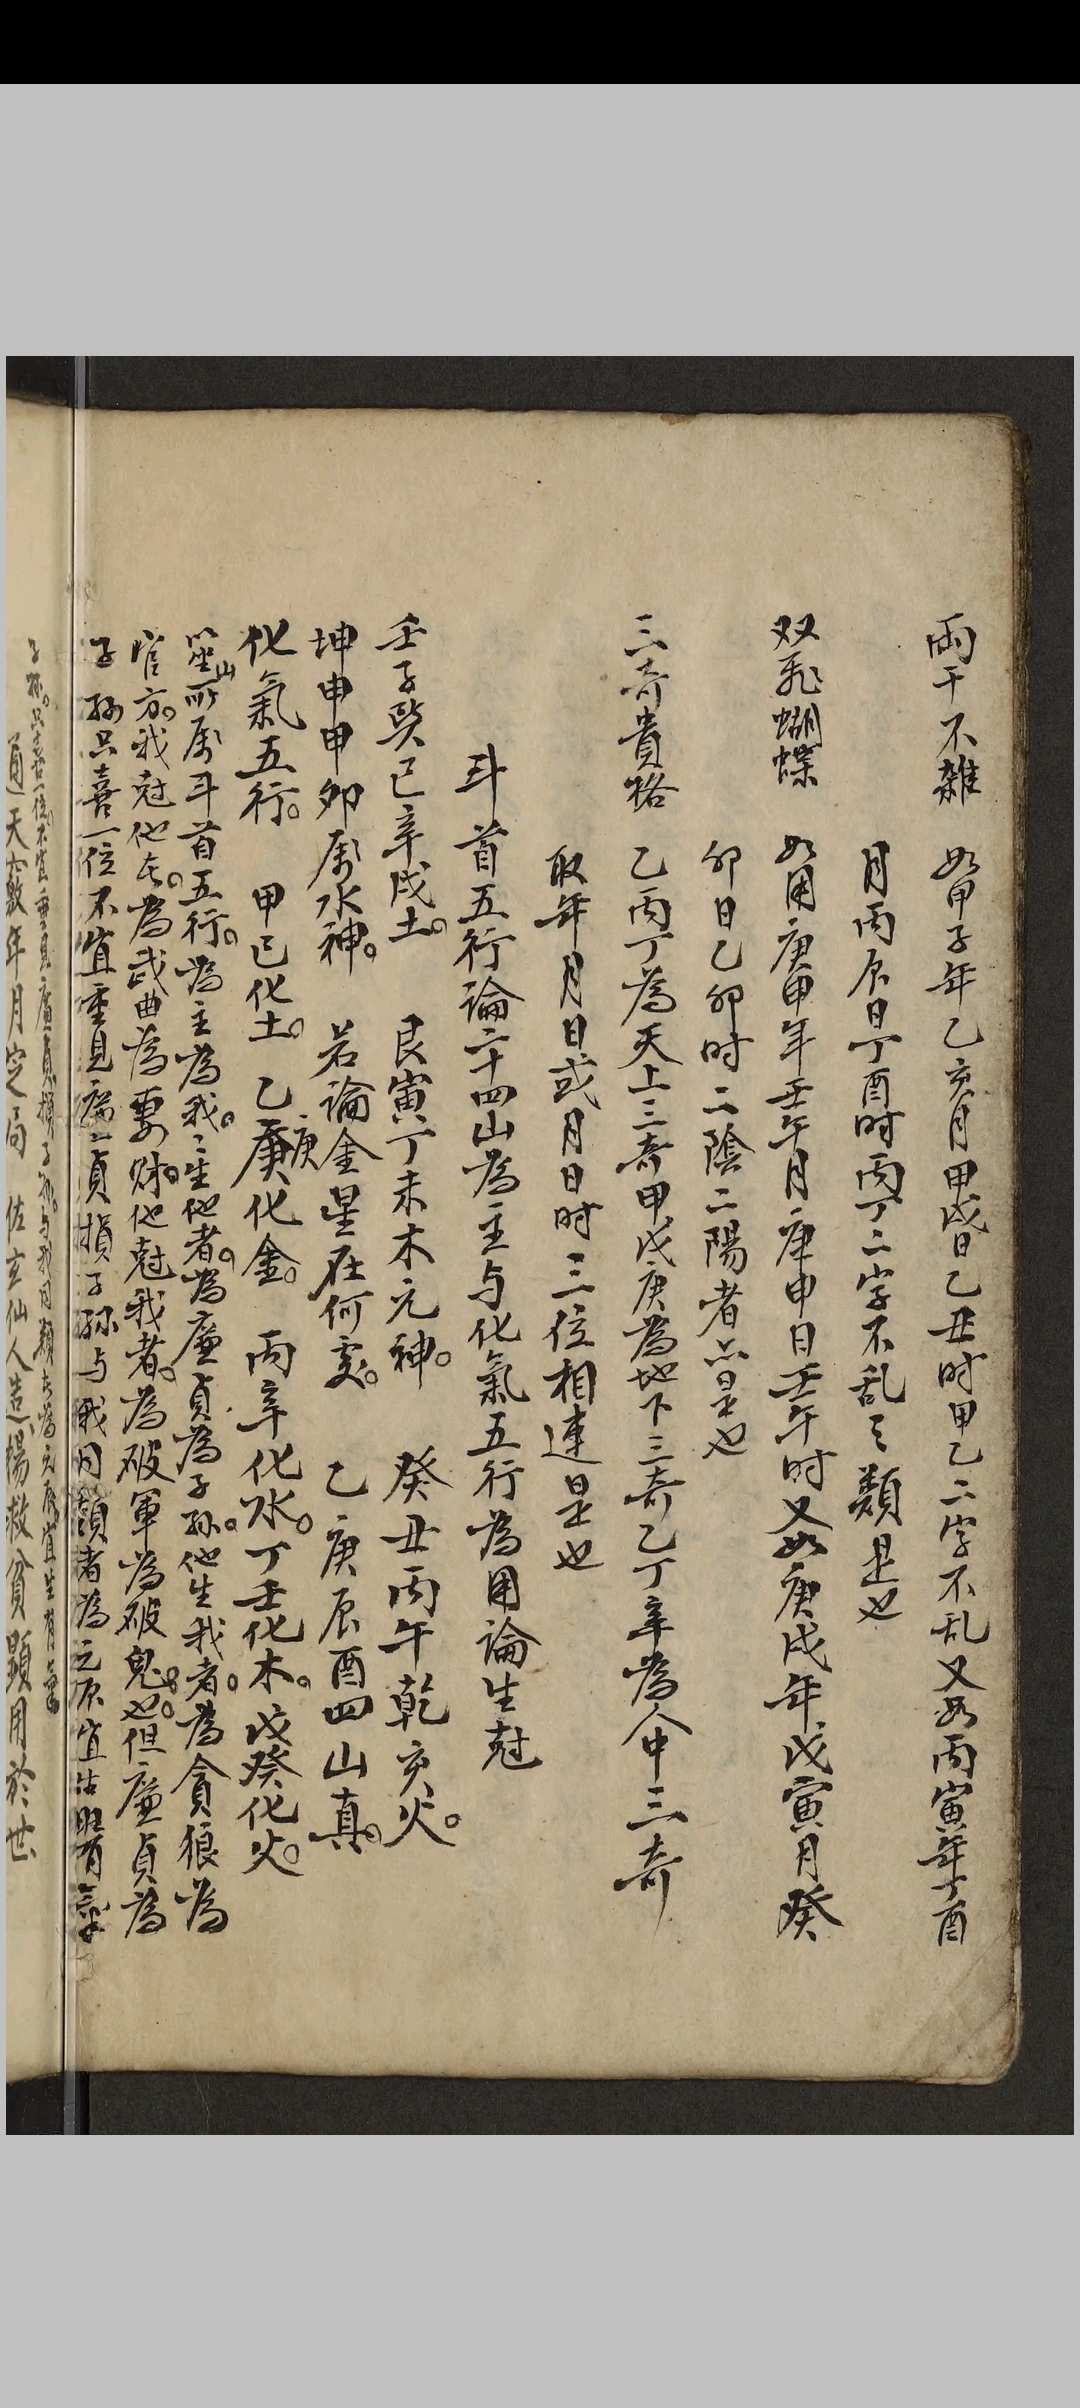 兩干不雜 如甲子年乙亥月甲戌日乙丑时甲乙二字不乱又如丙寅年丁酉
月丙辰日丁酉时丙丁二字不乱之類是也
双飛蝴蝶 如用庚申年壬午月庚申日壬午时又如庚戌年戊寅月癸
卯日乙卯时二陰二陽者亦是也
三奇貴格 乙丙丁為天上三奇甲戊庚為地下三奇乙丁辛為人中三奇
取年月日或月日时三位相連是也
斗首五行論二十四山為主与化氣五行為用論生尅
壬子巽巳辛戌土。 艮寅丁未木元神。 癸丑丙午乾亥火。
坤申甲卯属水神。 若論金星在何处。 乙庚辰酉四山真。
化氣五行。 甲己化土。 乙庚化金。 丙辛化水。丁壬化木。戊癸化火。
坐山所属斗首五行。為主為我。我生他者。為廉貞為子孫。他生我者。為貪狼為
官方。我尅他者。為武曲為妻財。他尅我者。為破軍為破鬼也。但廉貞為
子孫只喜一位不宜重見廉貞損子孫与我同類者為元辰宜 旺有氣
子孫。只喜一位。不宜重見廉貞損子孫。与我同類者為元辰宜生有氣
通天竅年月定局 佐玄仙人造楊救貧顯用於世